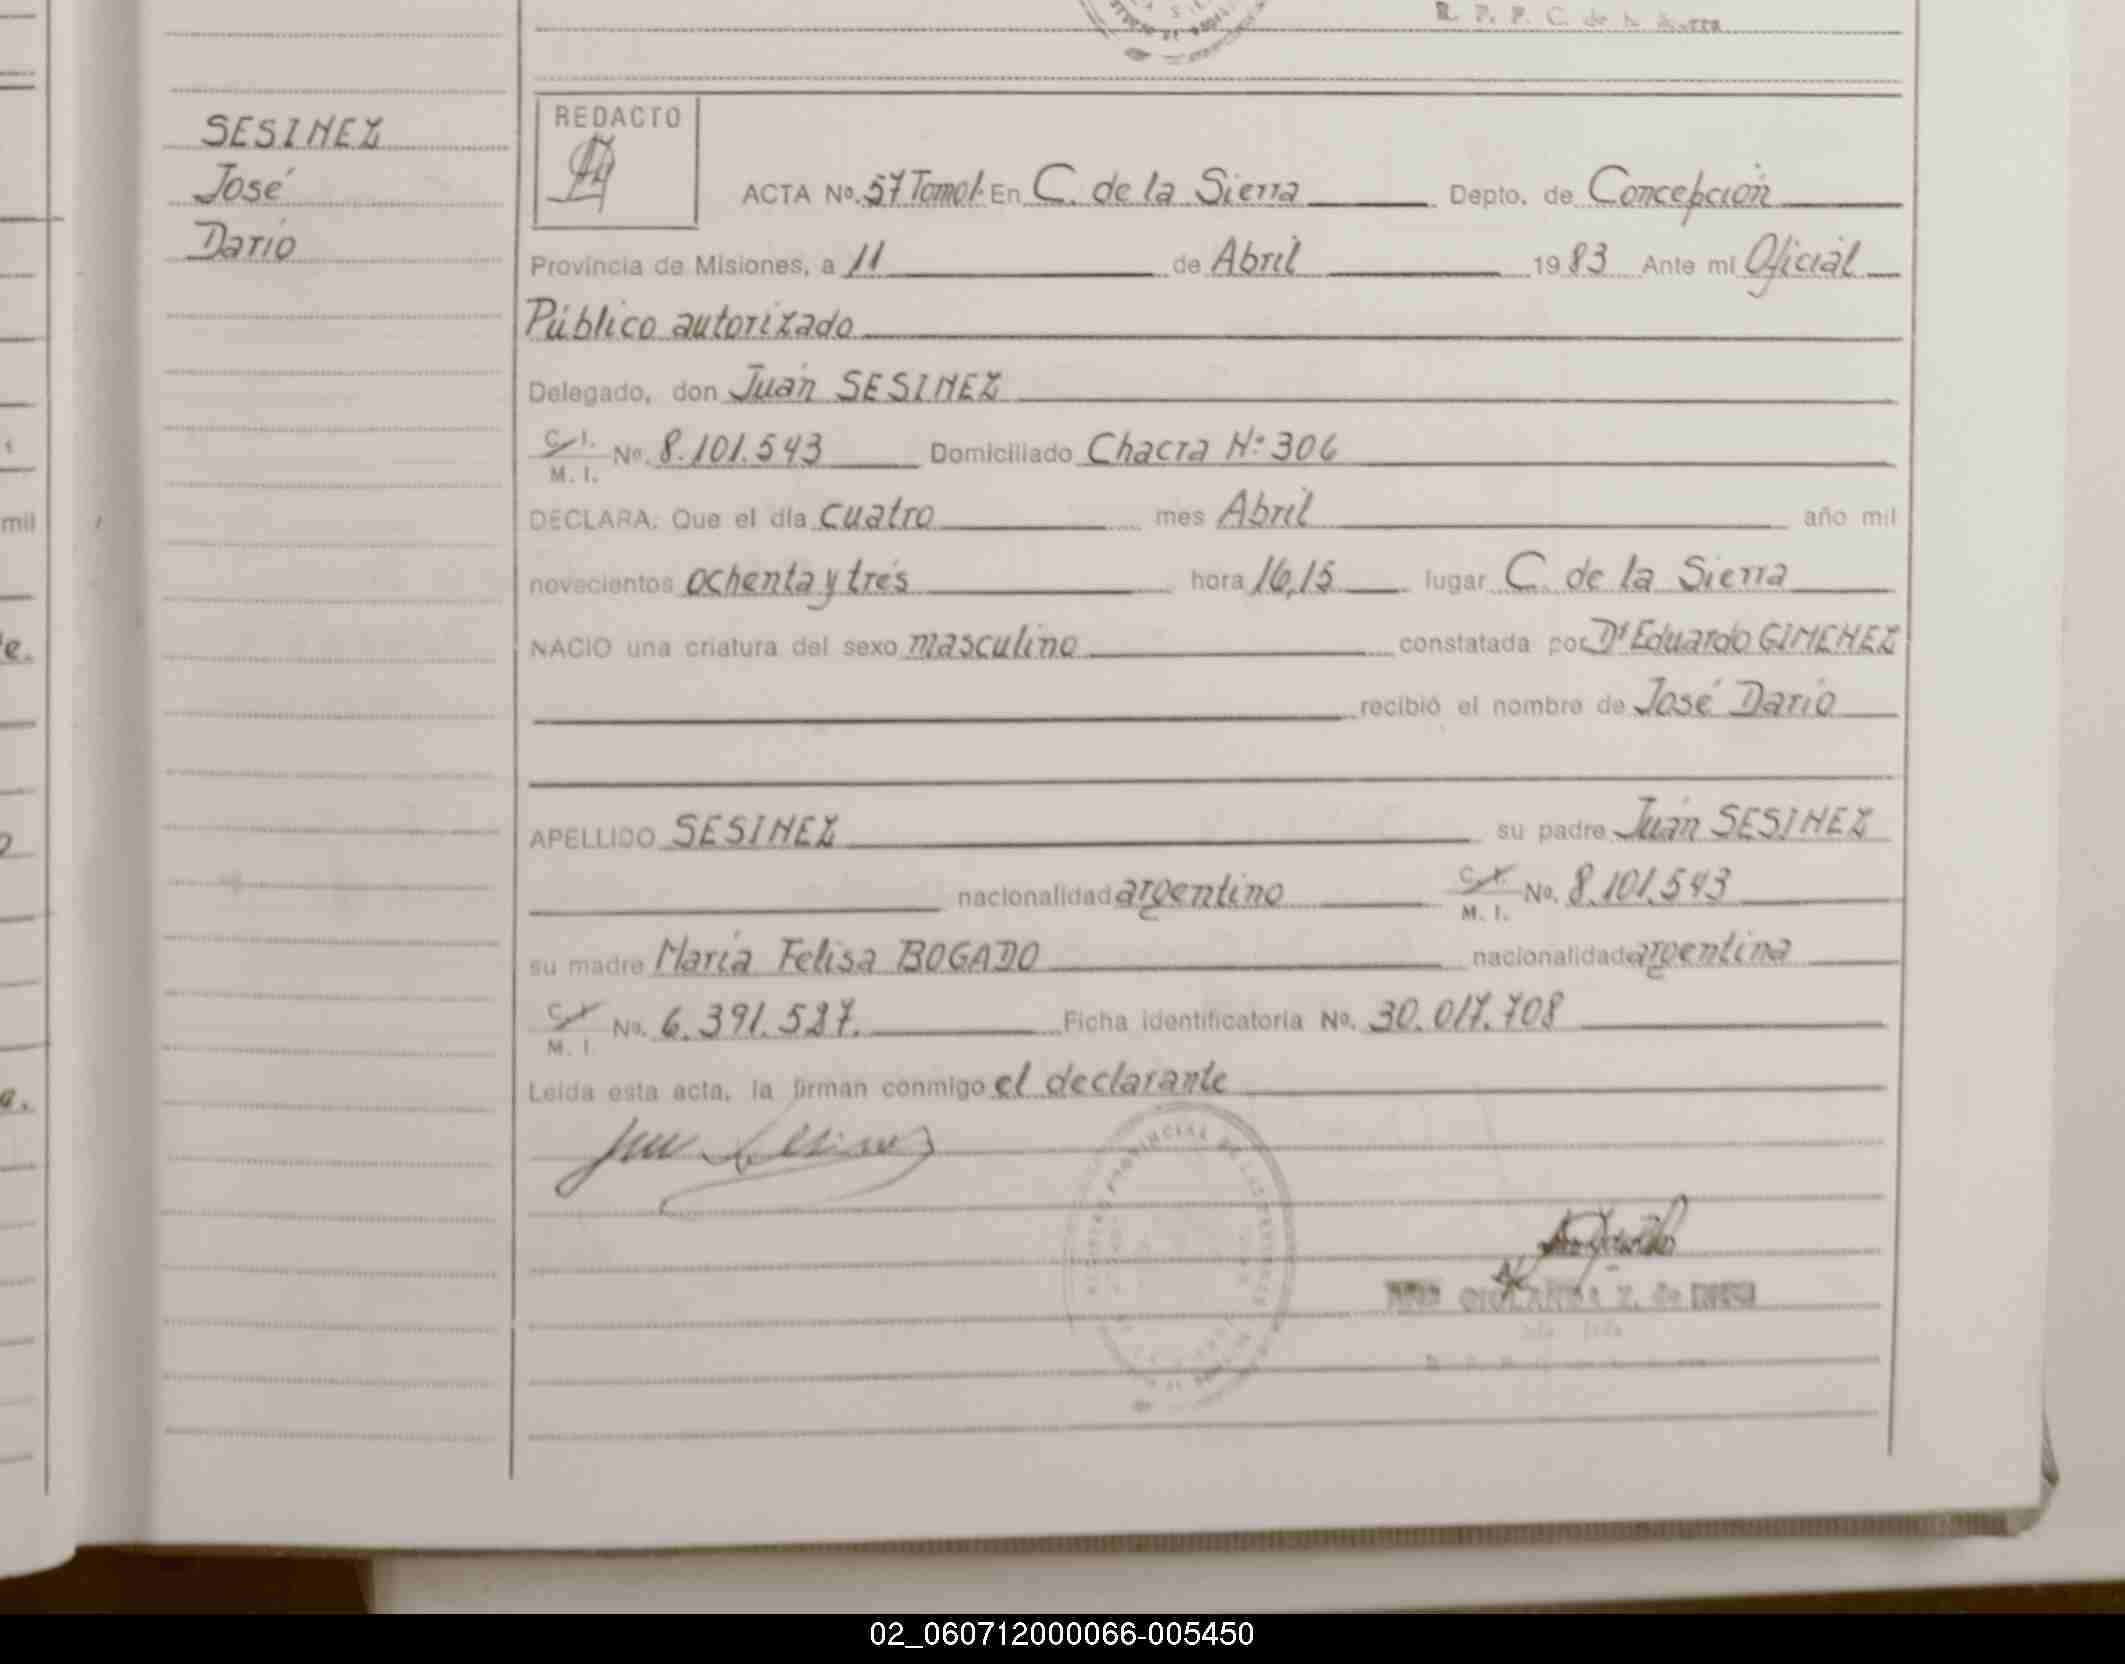 R. P. P. C. de la Sierra
SESINEZ
José
Darío
REDACTO
ACTA No. 57 Tomo I. En C. de la Sierra Depto. de Concepción
Provincia de Misiones, a 11 de Abril 1983 Ante mi Oficial
Público autorizado
Delegado, don Juan SESINEZ
C. I.
M. I. No. 8.101.543 Domiciliado Chacra N: 306
DECLARA: Que el día cuatro mes Abril año mil
novecientos ochenta y tres hora 16,15 lugar C. de la Sierra
NACIO una criatura del sexo masculino constatada por Dr Eduardo GIMENEZ
recibió el nombre de José Darío
APELLIDO SESINEZ su padre Juan SESINEZ
nacionalidad argentino C. I. M. I. No. 8.101.543
su madre María Felisa BOGADO nacionalidad argentina
C. I. M. I. No. 6.391.527. Ficha identificatoria No. 30.017.708
Leída esta acta, la firman conmigo el declarante
mil
02_060712000066-005450